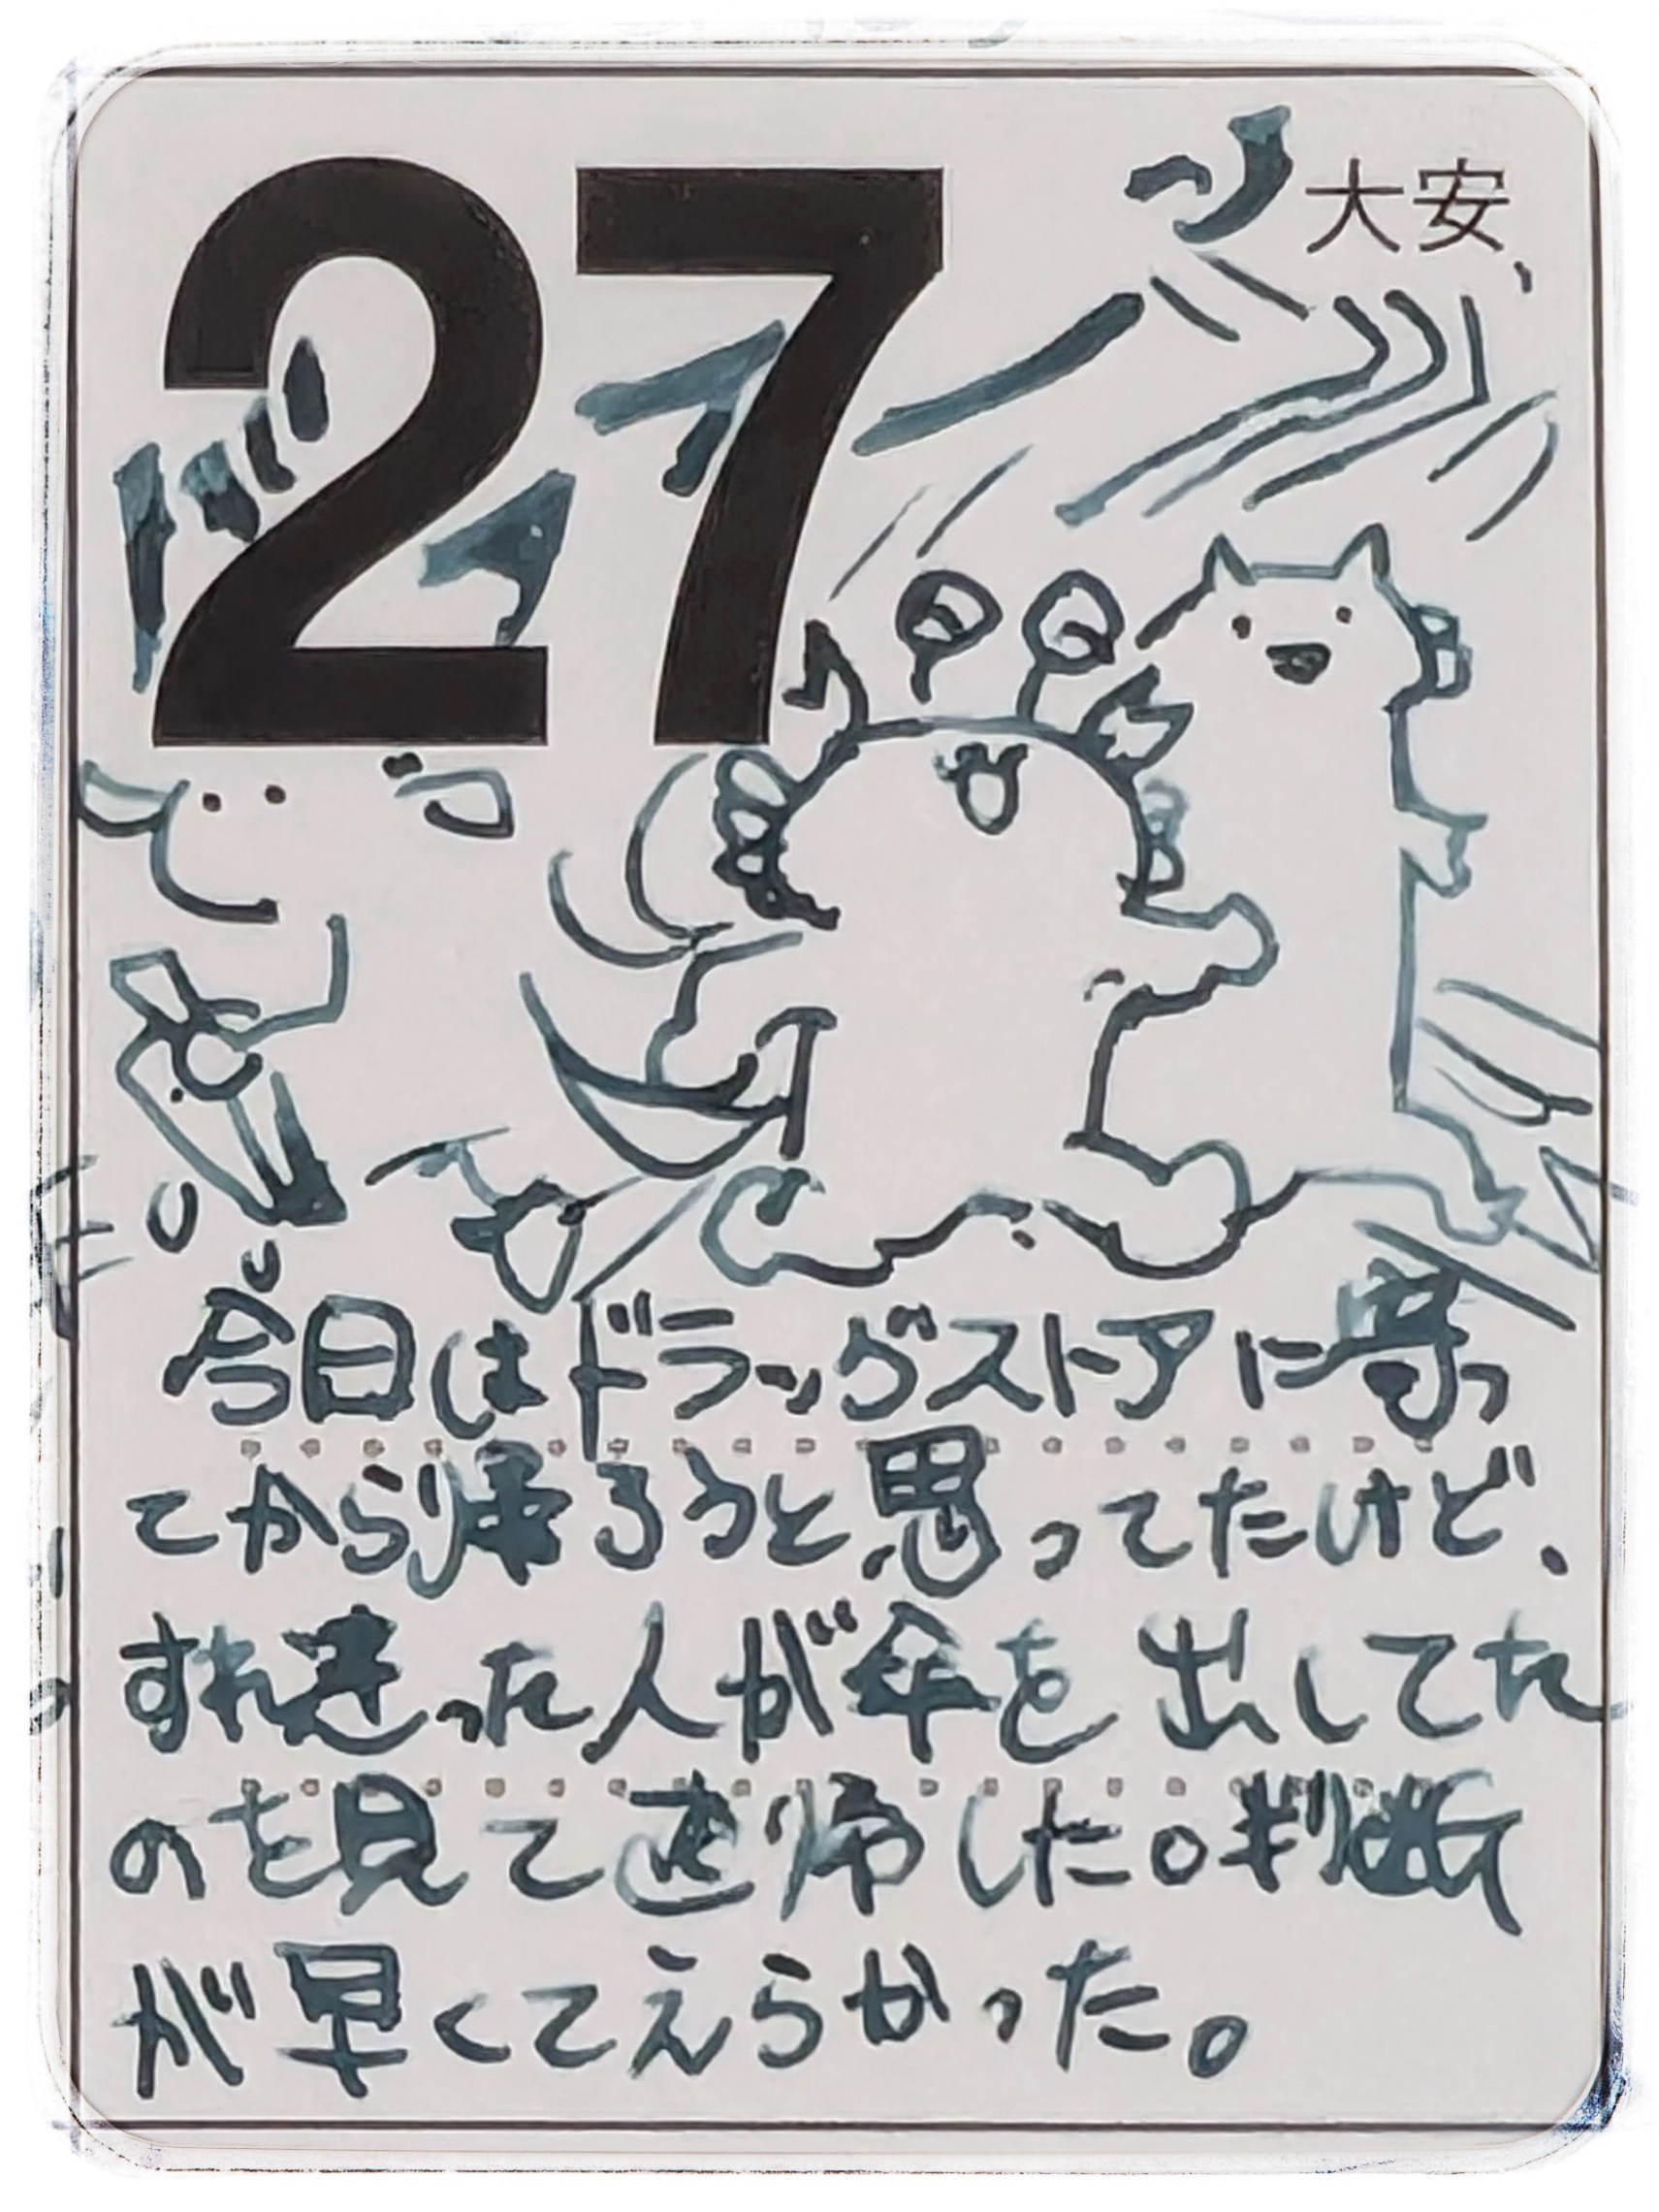 27
大安
今日はドラッグストアに寄っ
てから帰ろうと思ってたけど、
すれ違った人が傘を出してた
のを見て直帰した。判断
が早くてえらかった。